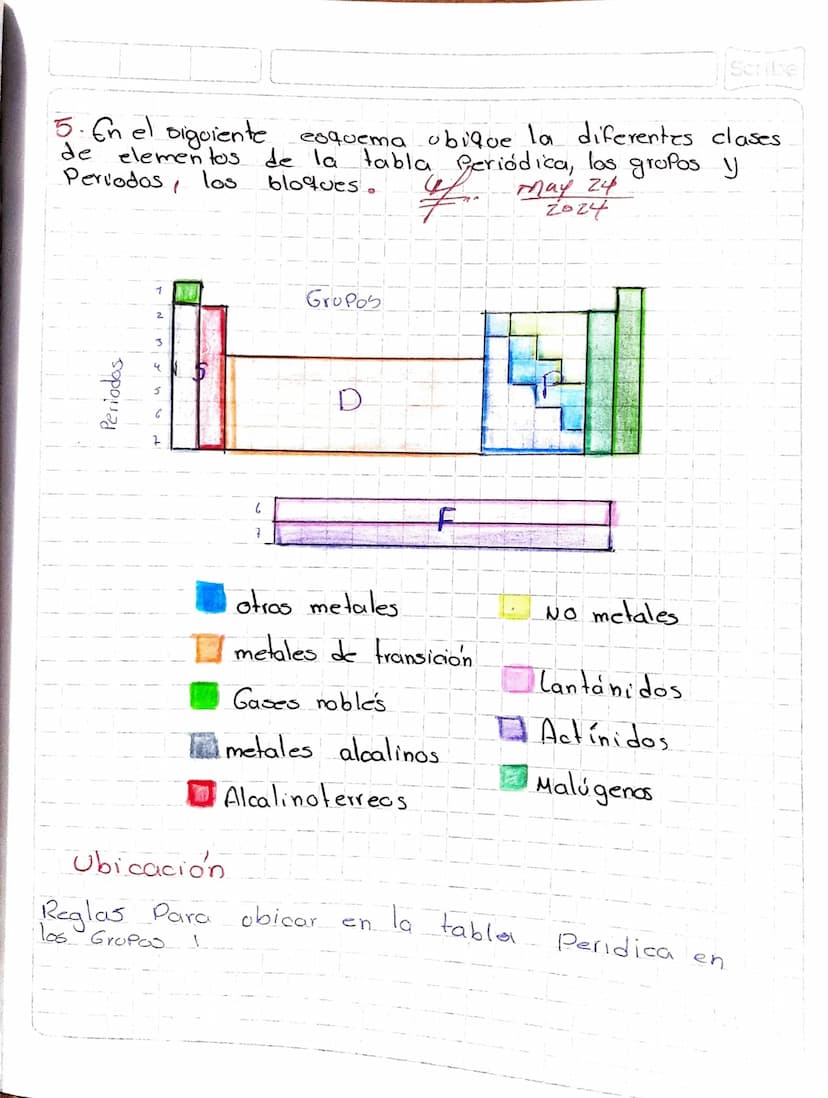 Scribe
5. En el siguiente esquema ubique la diferentes clases
de elementos de la tabla Periódica, los grupos y
Periodos, los bloques.
May 24
2024
Grupos
Periodos
1
2
3
4
5
6
7
S
D
P
6
7
F
otros metales
NO metales
metales de transición
Lantánidos
Gases nobles
Actínidos
metales alcalinos
Malógenos
Alcalinoterreos
Ubicación
Reglas Para ubicar en la tabla Peridica en
los Grupos